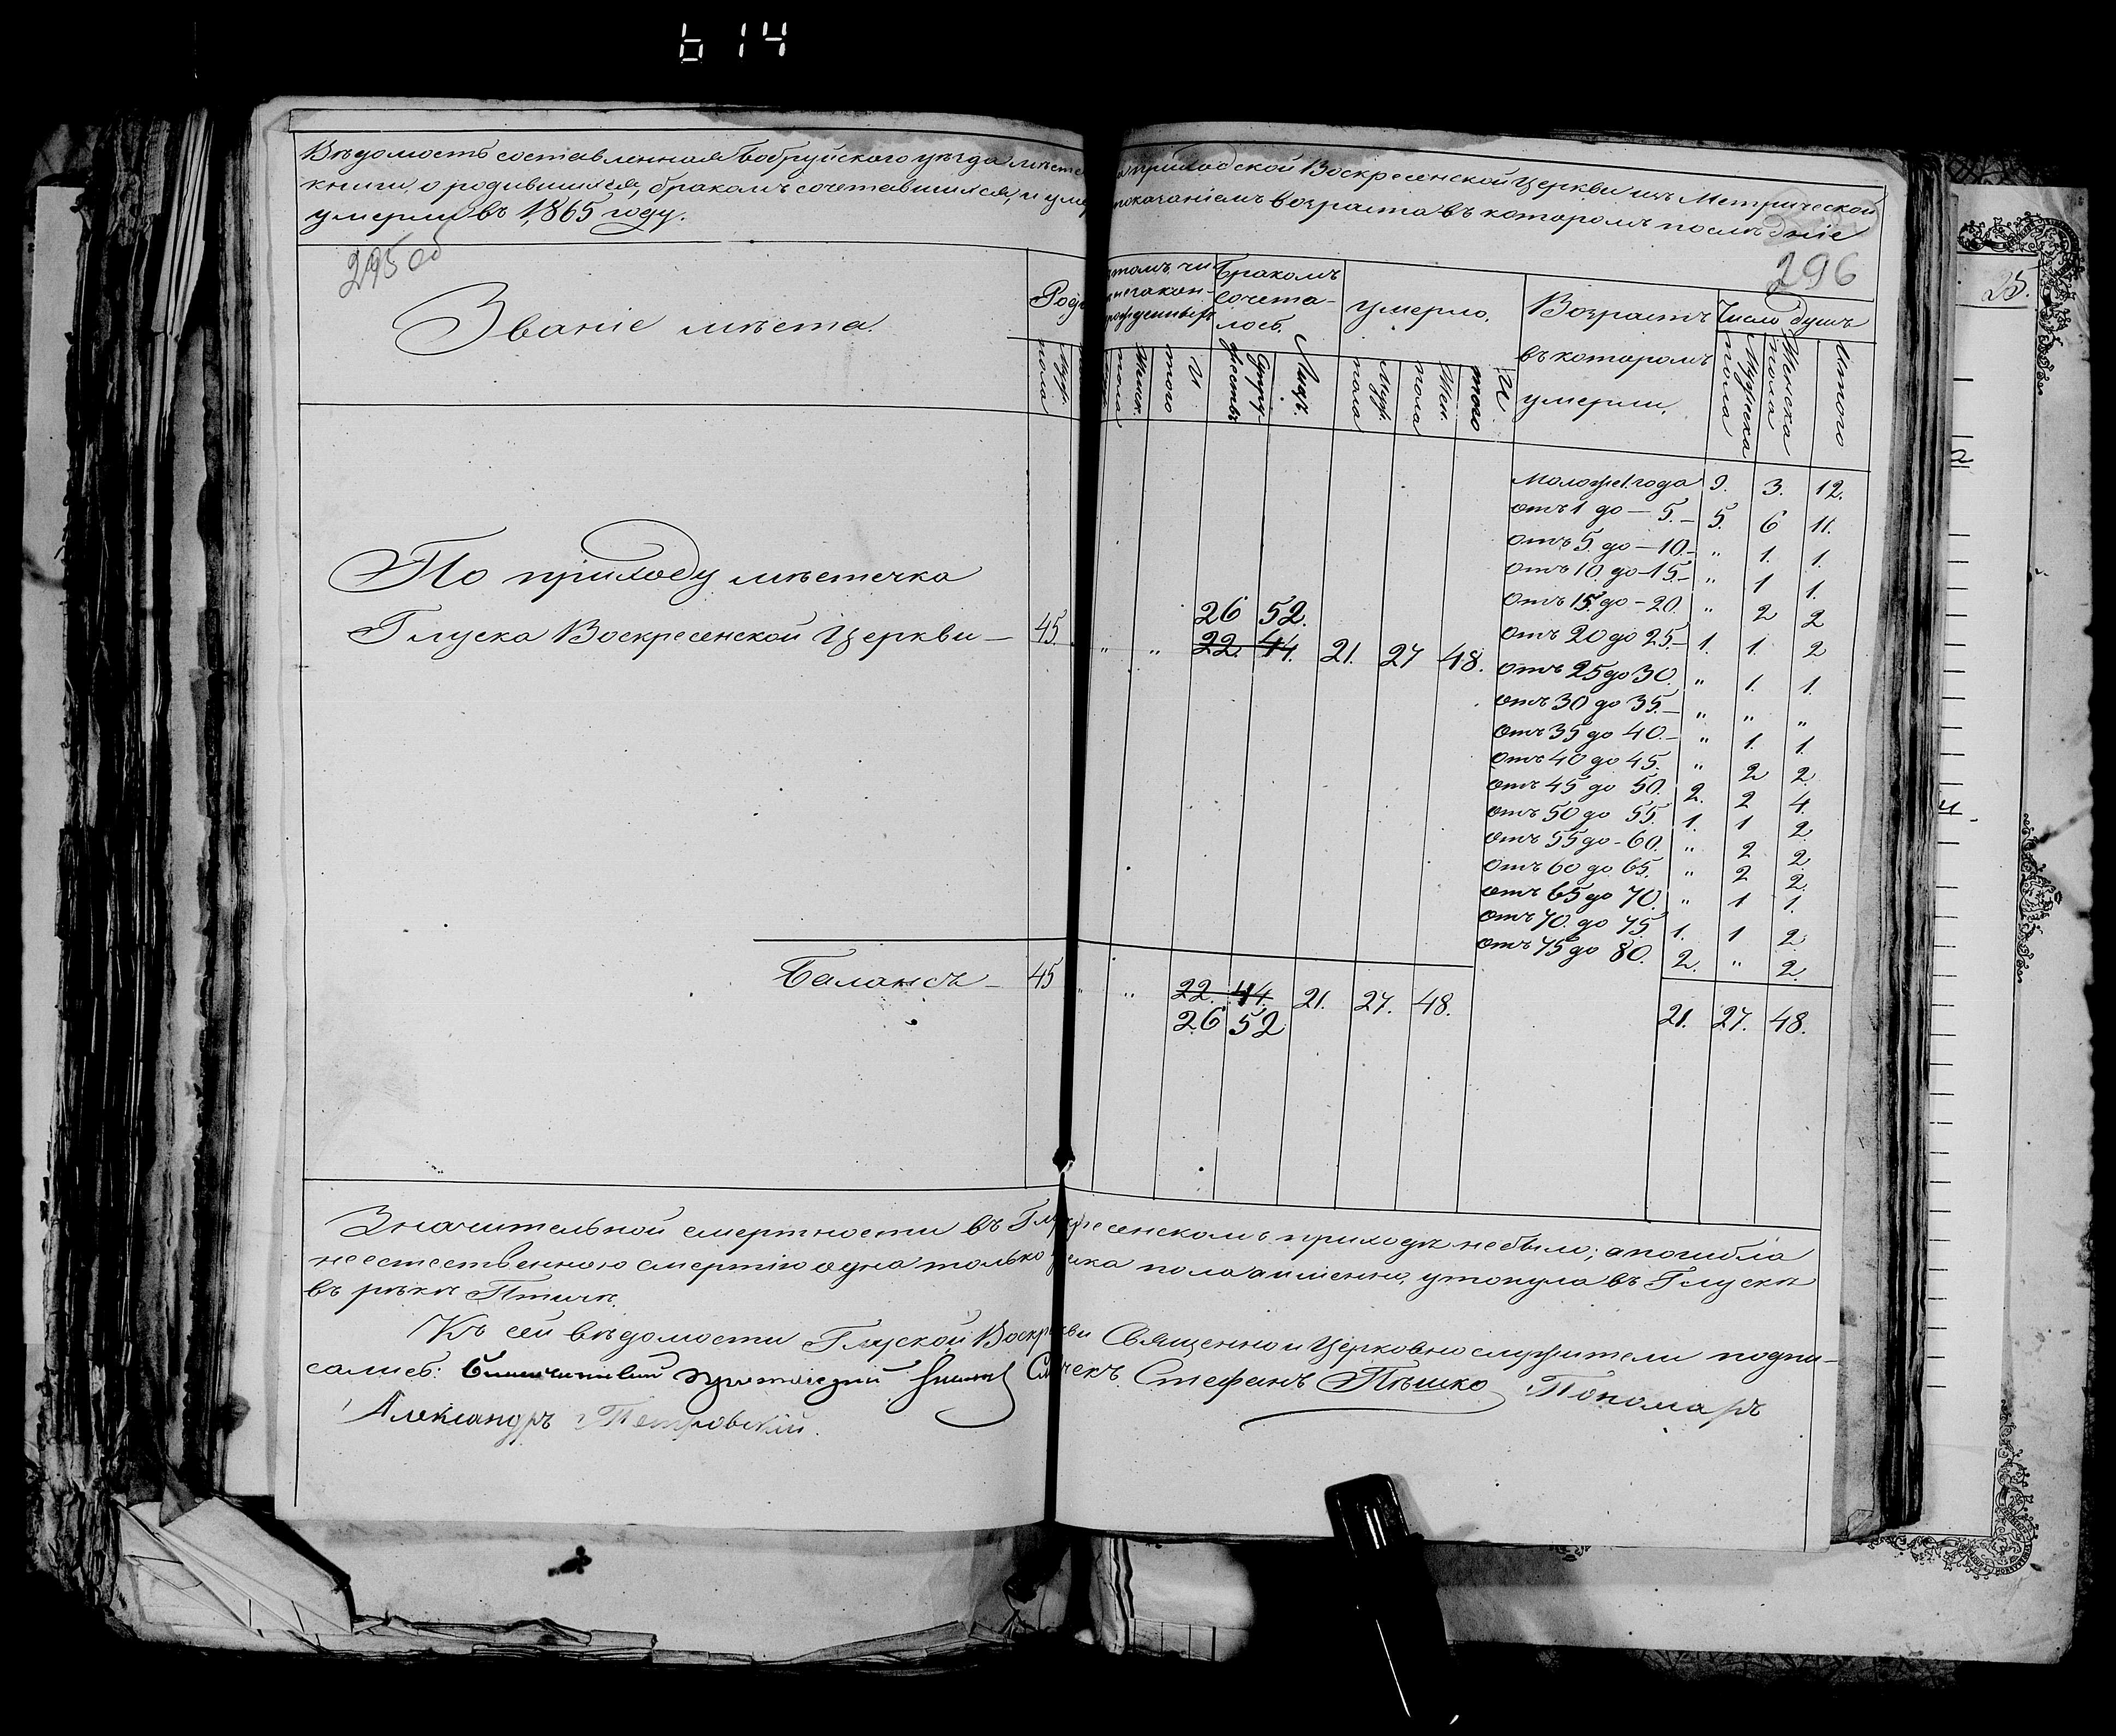 614
Вѣдомость составленная Бобруйского уѣзда мѣсте приходской Воскресенской Церкви изъ Метрической
книги, о родившихся, бракомъ сочетавшихся, и уме показаніемъ возраста въ которомъ послѣдніе
умерли въ 1865 году.
295 об
296
25.
Званіе мѣста.
Роди
томъ чи
незакон-
рожденныхъ
Бракомъ
сочета-
лось.
Умерло.
Возрастъ
въ которомъ
умерли.
Число душъ
Муж. пола
пола
Женск. пола
И того
Супру-
жествъ
Лицъ.
Муж. пола
Жен. пола
И того
Мужеска пола
Женска пола
Итого
Моложе 1. года 9. 3. 12.
отъ 1 до — 5. — 5. 6 11.
отъ 5. до — 10. — " 1. 1.
отъ 10. до — 15. — " 1 1.
отъ 15. до — 20. " 2 2
отъ 20 до 25. — 1. 1. 2
отъ 25 до 30. " 1. 1.
отъ 30 до 35. — " " "
отъ 35 до 40. — " 1. 1.
отъ 40 до 45. " 2 2
отъ 45 до 50. 2. 2 4.
отъ 50 до 55. 1. 1 2.
отъ 55 до - 60. " 2 2
отъ 60 до 65. " 2 2.
отъ 65 до 70. " 1 1.
отъ 70. до 75. 1. 1 2
отъ 75 до 80. 2. " 2.
По приходу мѣстечка
26 52.
Глуска Воскресенской Церкви — 45. " " 22. 44. 21. 27 48.
Балансъ — 45 " " 22. 44. 21. 27. 48. 21. 27. 48.
26 52
Значительной смертности въ Глу ресенскомъ приходѣ не было; а погибла
неестественною смертію одна только ска пола именно, утонула въ Глускѣ
въ рѣкѣ Птичѣ.
Къ сей вѣдомости Глуской Воскр кви Священно и Церковнослужители подпи-
сались: протоіерей Стефанъ Пѣшко Пономарь
Александръ Петровскій.